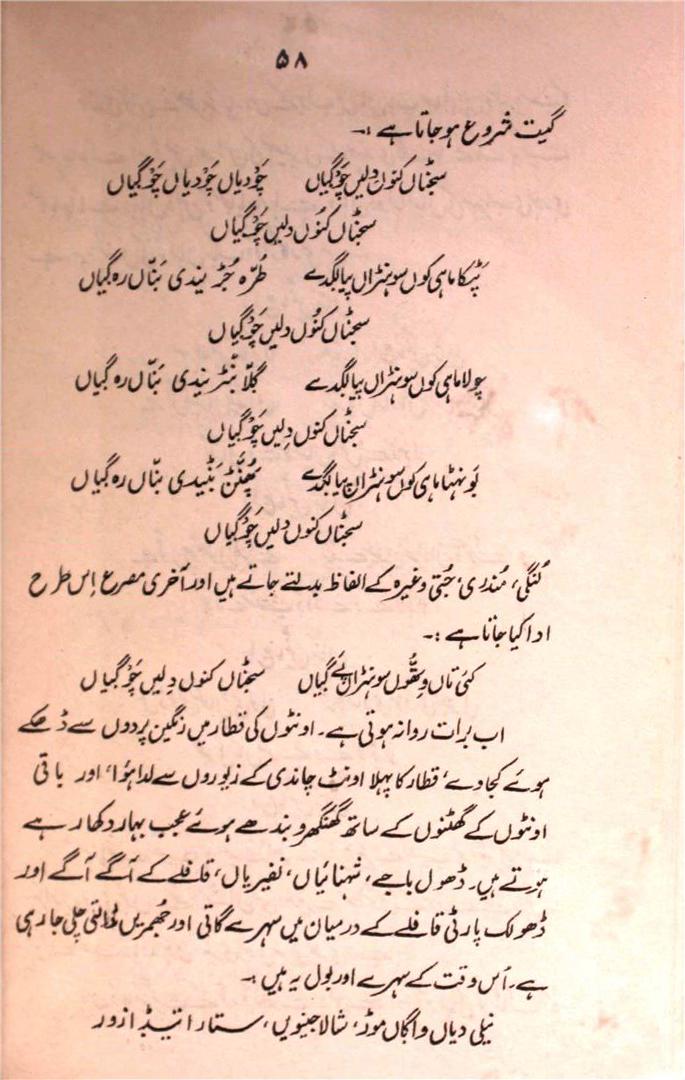 ۵۸
گیت شروع ہو جاتا ہے :۔
سجٹاں کنوں دلیں چَوگیاں چَودیاں چَودیاں چَوگیاں
سجٹاں کنُوں دلیں چَوگیاں
پَٹکا ماہی کوں سوہنڑاں پیا لگدے طُرّہ جُڑیندی بَناّں رہ گیاں
سجٹاں کنُوں دلیں چَوگیاں
چولا ماہی کوں سوہنڑاں پیا لگدے گلّا بنڑیندی بَناّں رہ گیاں
سجٹاں کنوں دِلیں چَوگیاں
بَونہٹا ماہی کوں سوہنڑاں پیا لگدے بنّاں رہ گیاں
سجٹاں کنوں دلیں چَوگیاں
لُنگی، مُندری، جُتی وغیرہ کے الفاظ بدلتے جاتے ہیں اور آخری مصرع اِس طرح
ادا کیا جاتا ہے :۔
کئی تاں وِتھُّوں سوہنڑاں پَے گیاں سجٹاں کنوں دِلیں چَوگیاں
اب برات روانہ ہوتی ہے۔ اونٹوں کی قطار میں رنگین پردوں سے ڈھکے
ہوئے کجاوے، قطار کا پہلا اونٹ چاندی کے زیوروں سے لدا ہؤا، اور باقی
اونٹوں کے گھٹنوں کے ساتھ گھنگھرو بندھے ہوئے عجب بہار دکھا رہے
ہوتے ہیں۔ ڈھول باجے، شہنائیاں، نفیریاں، قافلے کے آگے آگے اور
ڈھولک پارٹی قافلے کے درمیان میں سہرے گاتی اور جُھمریں ڈالتی چلی جا رہی
ہے۔ اُس وقت کے سہرے اور بول یہ ہیں :۔
نیلی دیاں واگاں موڑ، شالا جیویں، ستارا